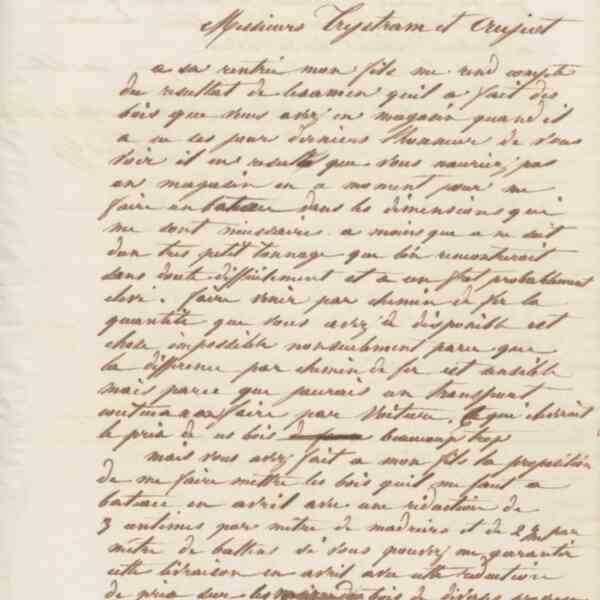 Messieurs Trystram et Crujeot
a sa rentrée mon fils me rend compte
du resultat de lexamen quil a fait des
bois que vous avez en magasin quand il
a eu ces jour derniers lhonneur de vous
voir il en resulte que vous nauriez pas
en magasin en a moment pour me
faire un bateau dans les dimensions qui
me sont nécessaires a moins que a ne soit
dun tres petit tonnage que lon remonterait
sans doute difficilement et a un fret probablement
elevé. faire venir par chemin de fer la
quantité que vous avez de disponible est
chose impossible nonseulement parce que
la difference par chemin de fer est sensible
mais parce que jaurais un transport
couteux a faire par voiture, qui eleverait
le prix de ces bois beaucoup trop
mais vous avez fait a mon fils la proposition
de me faire mettre les bois quil me faut a
bateau en avril avec une réduction de
3 centimes par mètre de madriers et de 2 par
mètre de battens si vous pouvez me garantir
cette livraison en avril avec cette reduction
de prix sur les bois de diverses